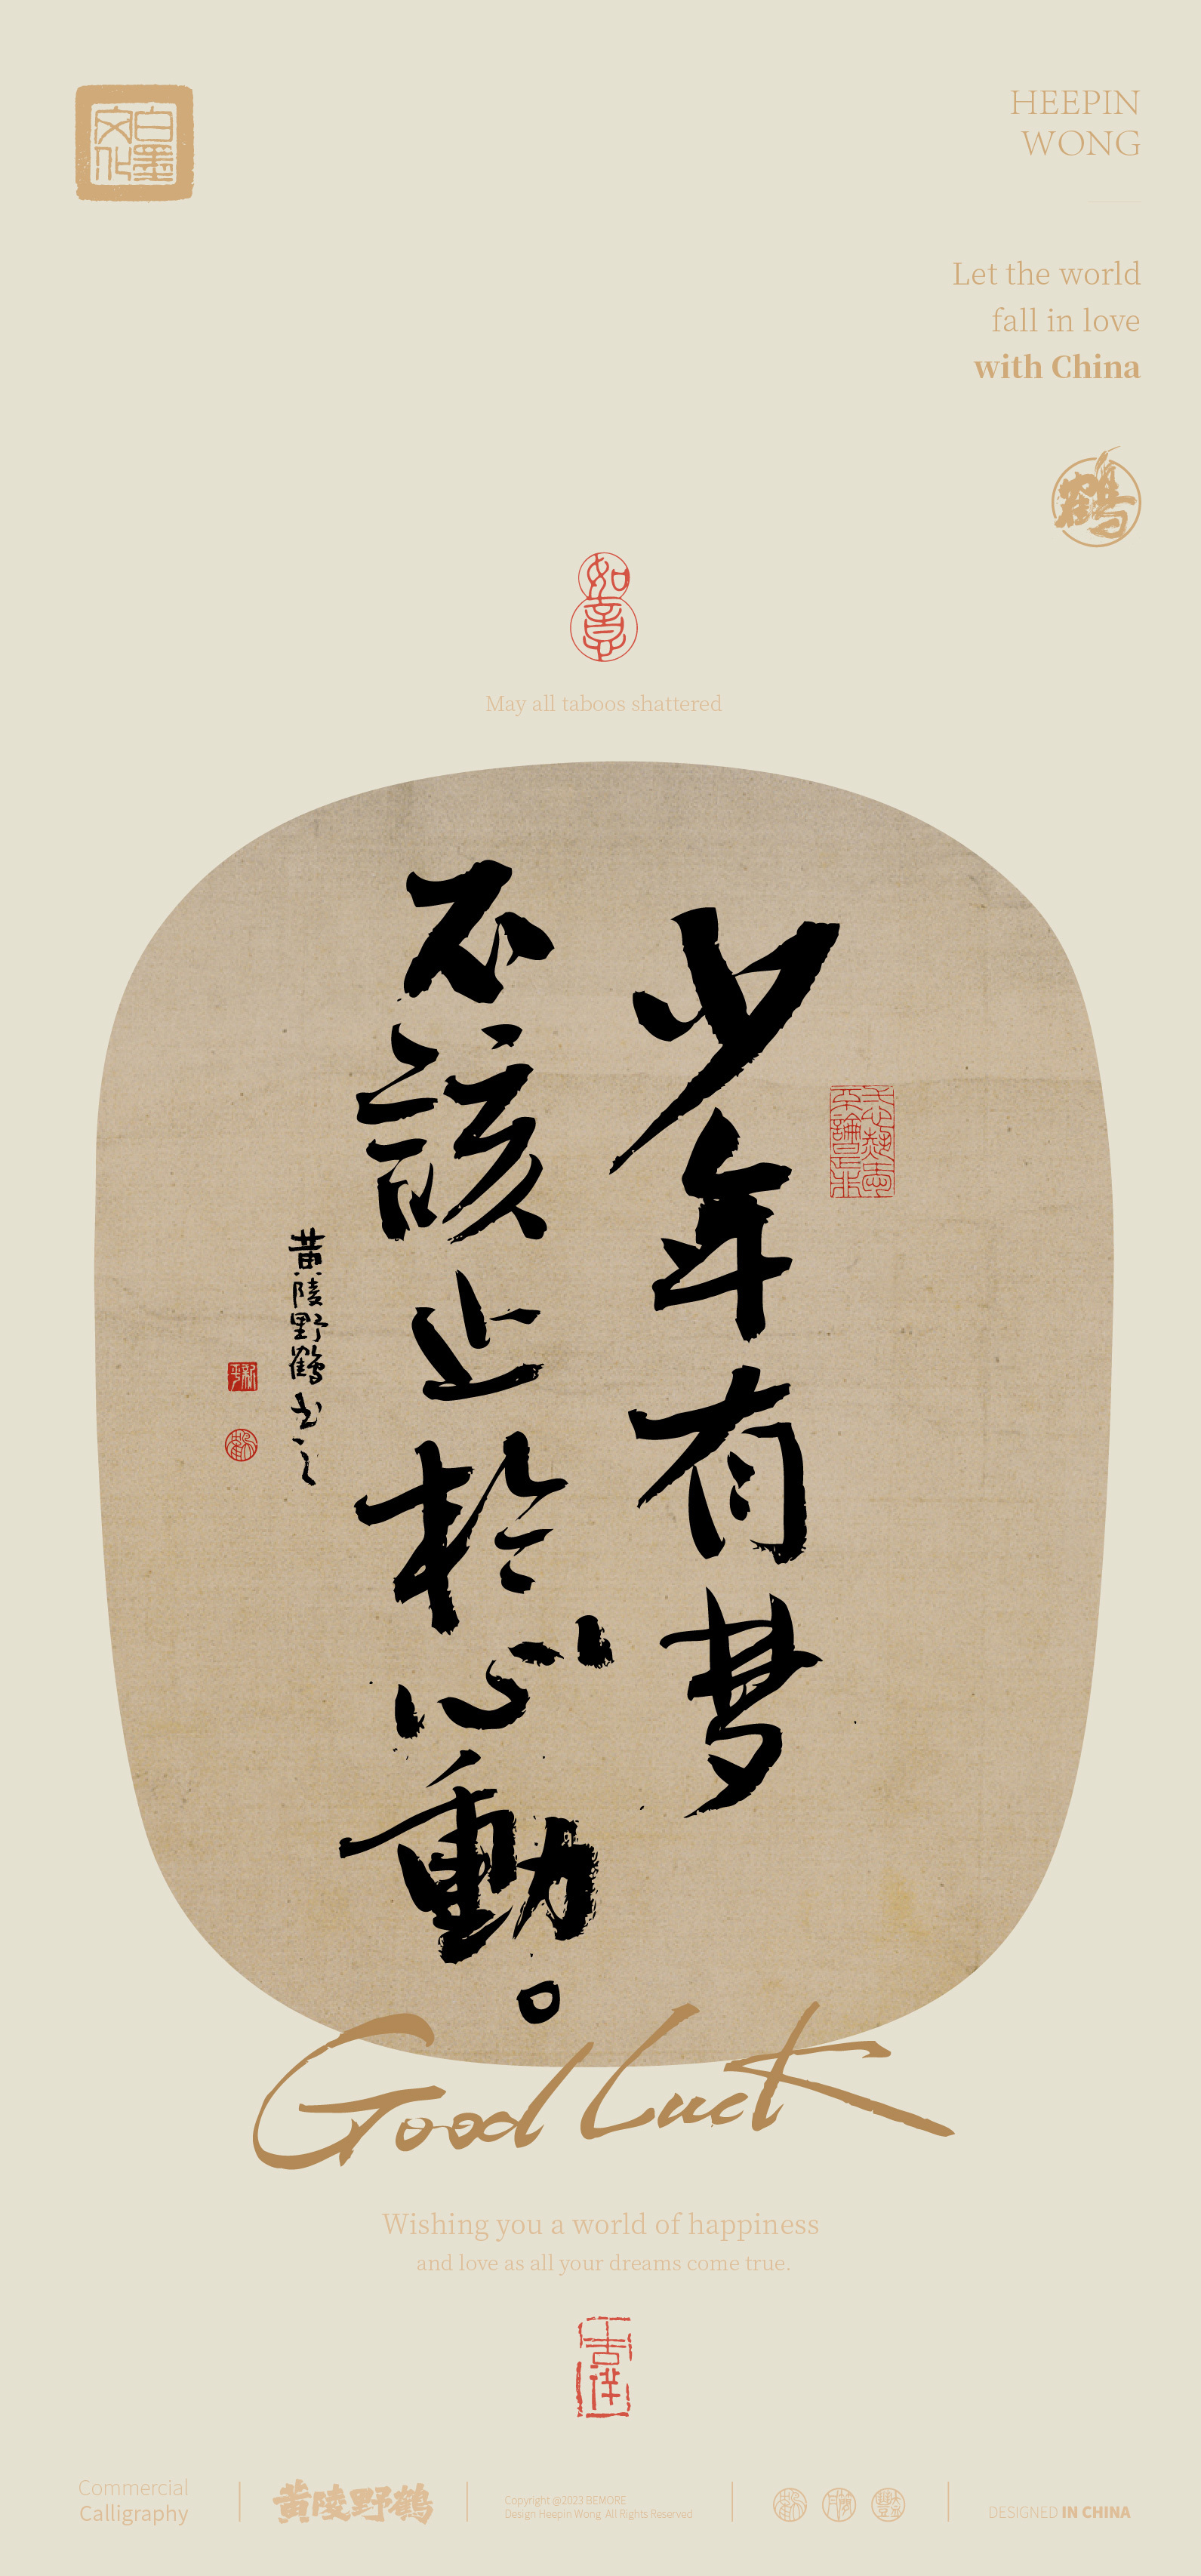 白墨
文化
HEEPIN
WONG
Let the world
fall in love
with China
鶴
如意
May all taboos shattered
少年有梦
不該止於心動。
黄陵野鶴书之
Good Luck
Wishing you a world of happiness
and love as all your dreams come true.
吉祥
Commercial
Calligraphy
黄陵野鶴
Copyright @2023 BEMORE
Design Heepin Wong All Rights Reserved
DESIGNED IN CHINA